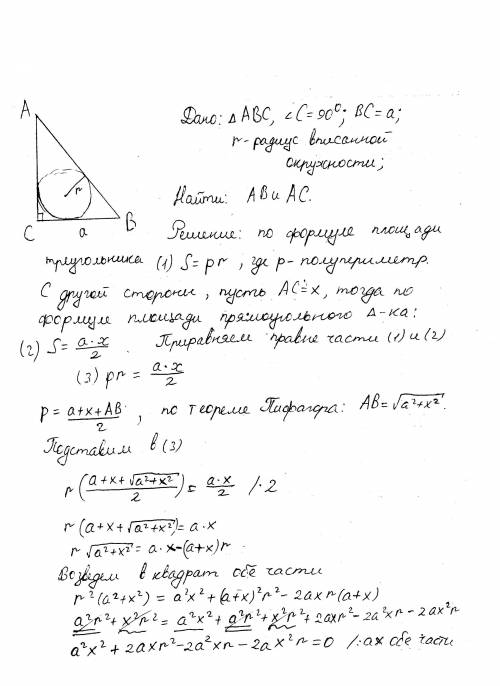 A
Дано: △ABC, ∠C=90⁰; BC=a;
r-радиус вписанной
окружности;
r
Найти: AB и AC.
C a B
Решение: по формуле площади
треугольника (1) S=pr, где p-полупериметр.
С другой стороны, пусть AC=x, тогда по
формуле площади прямоугольного △-ка:
(2) S=a·x/2. Приравняем правые части (1) и (2)
(3) pr = a·x/2
p=a+x+AB/2, по теореме Пифагора: AB=√a²+x².
Подставим в (3)
r(a+x+√a²+x²/2)=a·x/2 /·2
r(a+x+√a²+x²)=a·x
r√a²+x²=a·x-(a+x)r
Возведем в квадрат обе части
r²(a²+x²)=a²x²+(a+x)²r²-2axr(a+x)
a²r²+x²r²=a²x²+a²r²+x²r²+2axr²-2a²xr-2ax²r
a²x²+2axr²-2a²xr-2ax²r=0 /:ax обе части